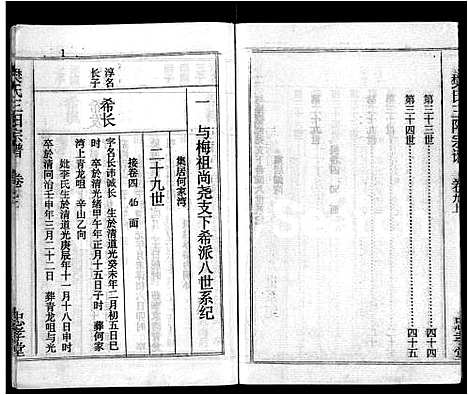 樊氏三阳宗谱 卷九上
第三十三世 四十四
第三十四世 四十五
忠孝堂
一 与梅祖尚尧支下希派八世系纪
集居何家湾
二十九世
接卷四 46面
淳名长子
希长
字名长沛诚长 生於清道光癸未年二月初五日巳
时 卒於清光绪甲午年正月十五日子时 葬何家
湾上青龙咀 辛山乙向
妣李氏生於清道光庚辰年十一月十八日申时
卒於清同治壬申年三月二十二日 葬青龙咀与光
樊氏三阳宗谱
忠孝堂
1